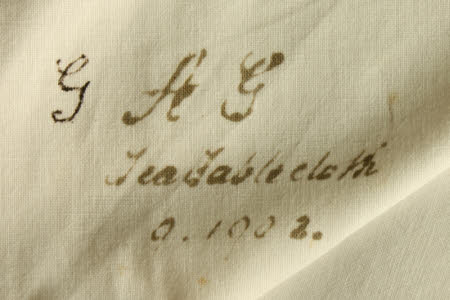 G A G
Tea Tablecloth
9. 1902.